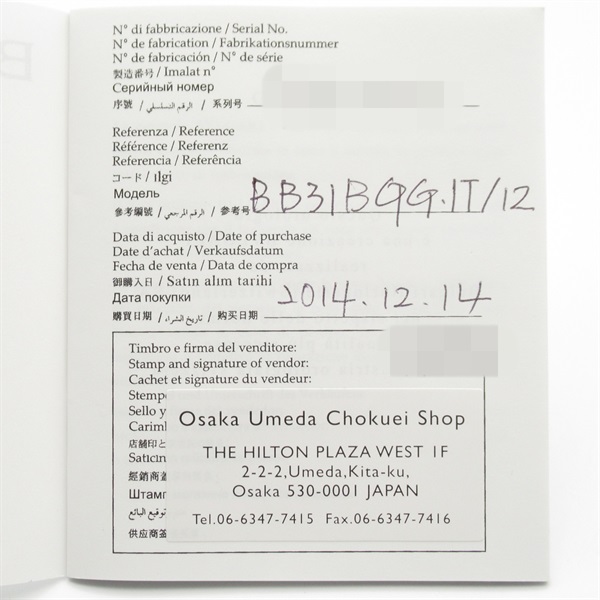 N° di fabbricazione / Serial No.
N° de fabrication / Fabrikationsnummer
N° de fabricación / N° de série
製造番号 / Imalat n°
Серийный номер
序號 / الرقم التسلسلي / 系列号
Referenza / Reference
Référence / Referenz
Referencia / Referência
コード / ılgi
Модель
參考編號 / الرقم المرجعي / 参考号 BB31BGG.IT/12
Data di acquisto / Date of purchase
Date d'achat / Verkaufsdatum
Fecha de venta / Data de compra
御購入日 / Satın alım tarihi
Дата покупки
購買日期 / تاريخ الشراء / 购买日期 2014.12.14
Timbro e firma del venditore:
Stamp and signature of vendor:
Cachet et signature du vendeur:
Stempe
Sello y
Carimb
店舗印と
Satıcın
經銷商蓋
Штамп
توقيع البائع
供应商盖
Osaka Umeda Chokuei Shop
THE HILTON PLAZA WEST 1F
2-2-2,Umeda,Kita-ku,
Osaka 530-0001 JAPAN
Tel.06-6347-7415 Fax.06-6347-7416